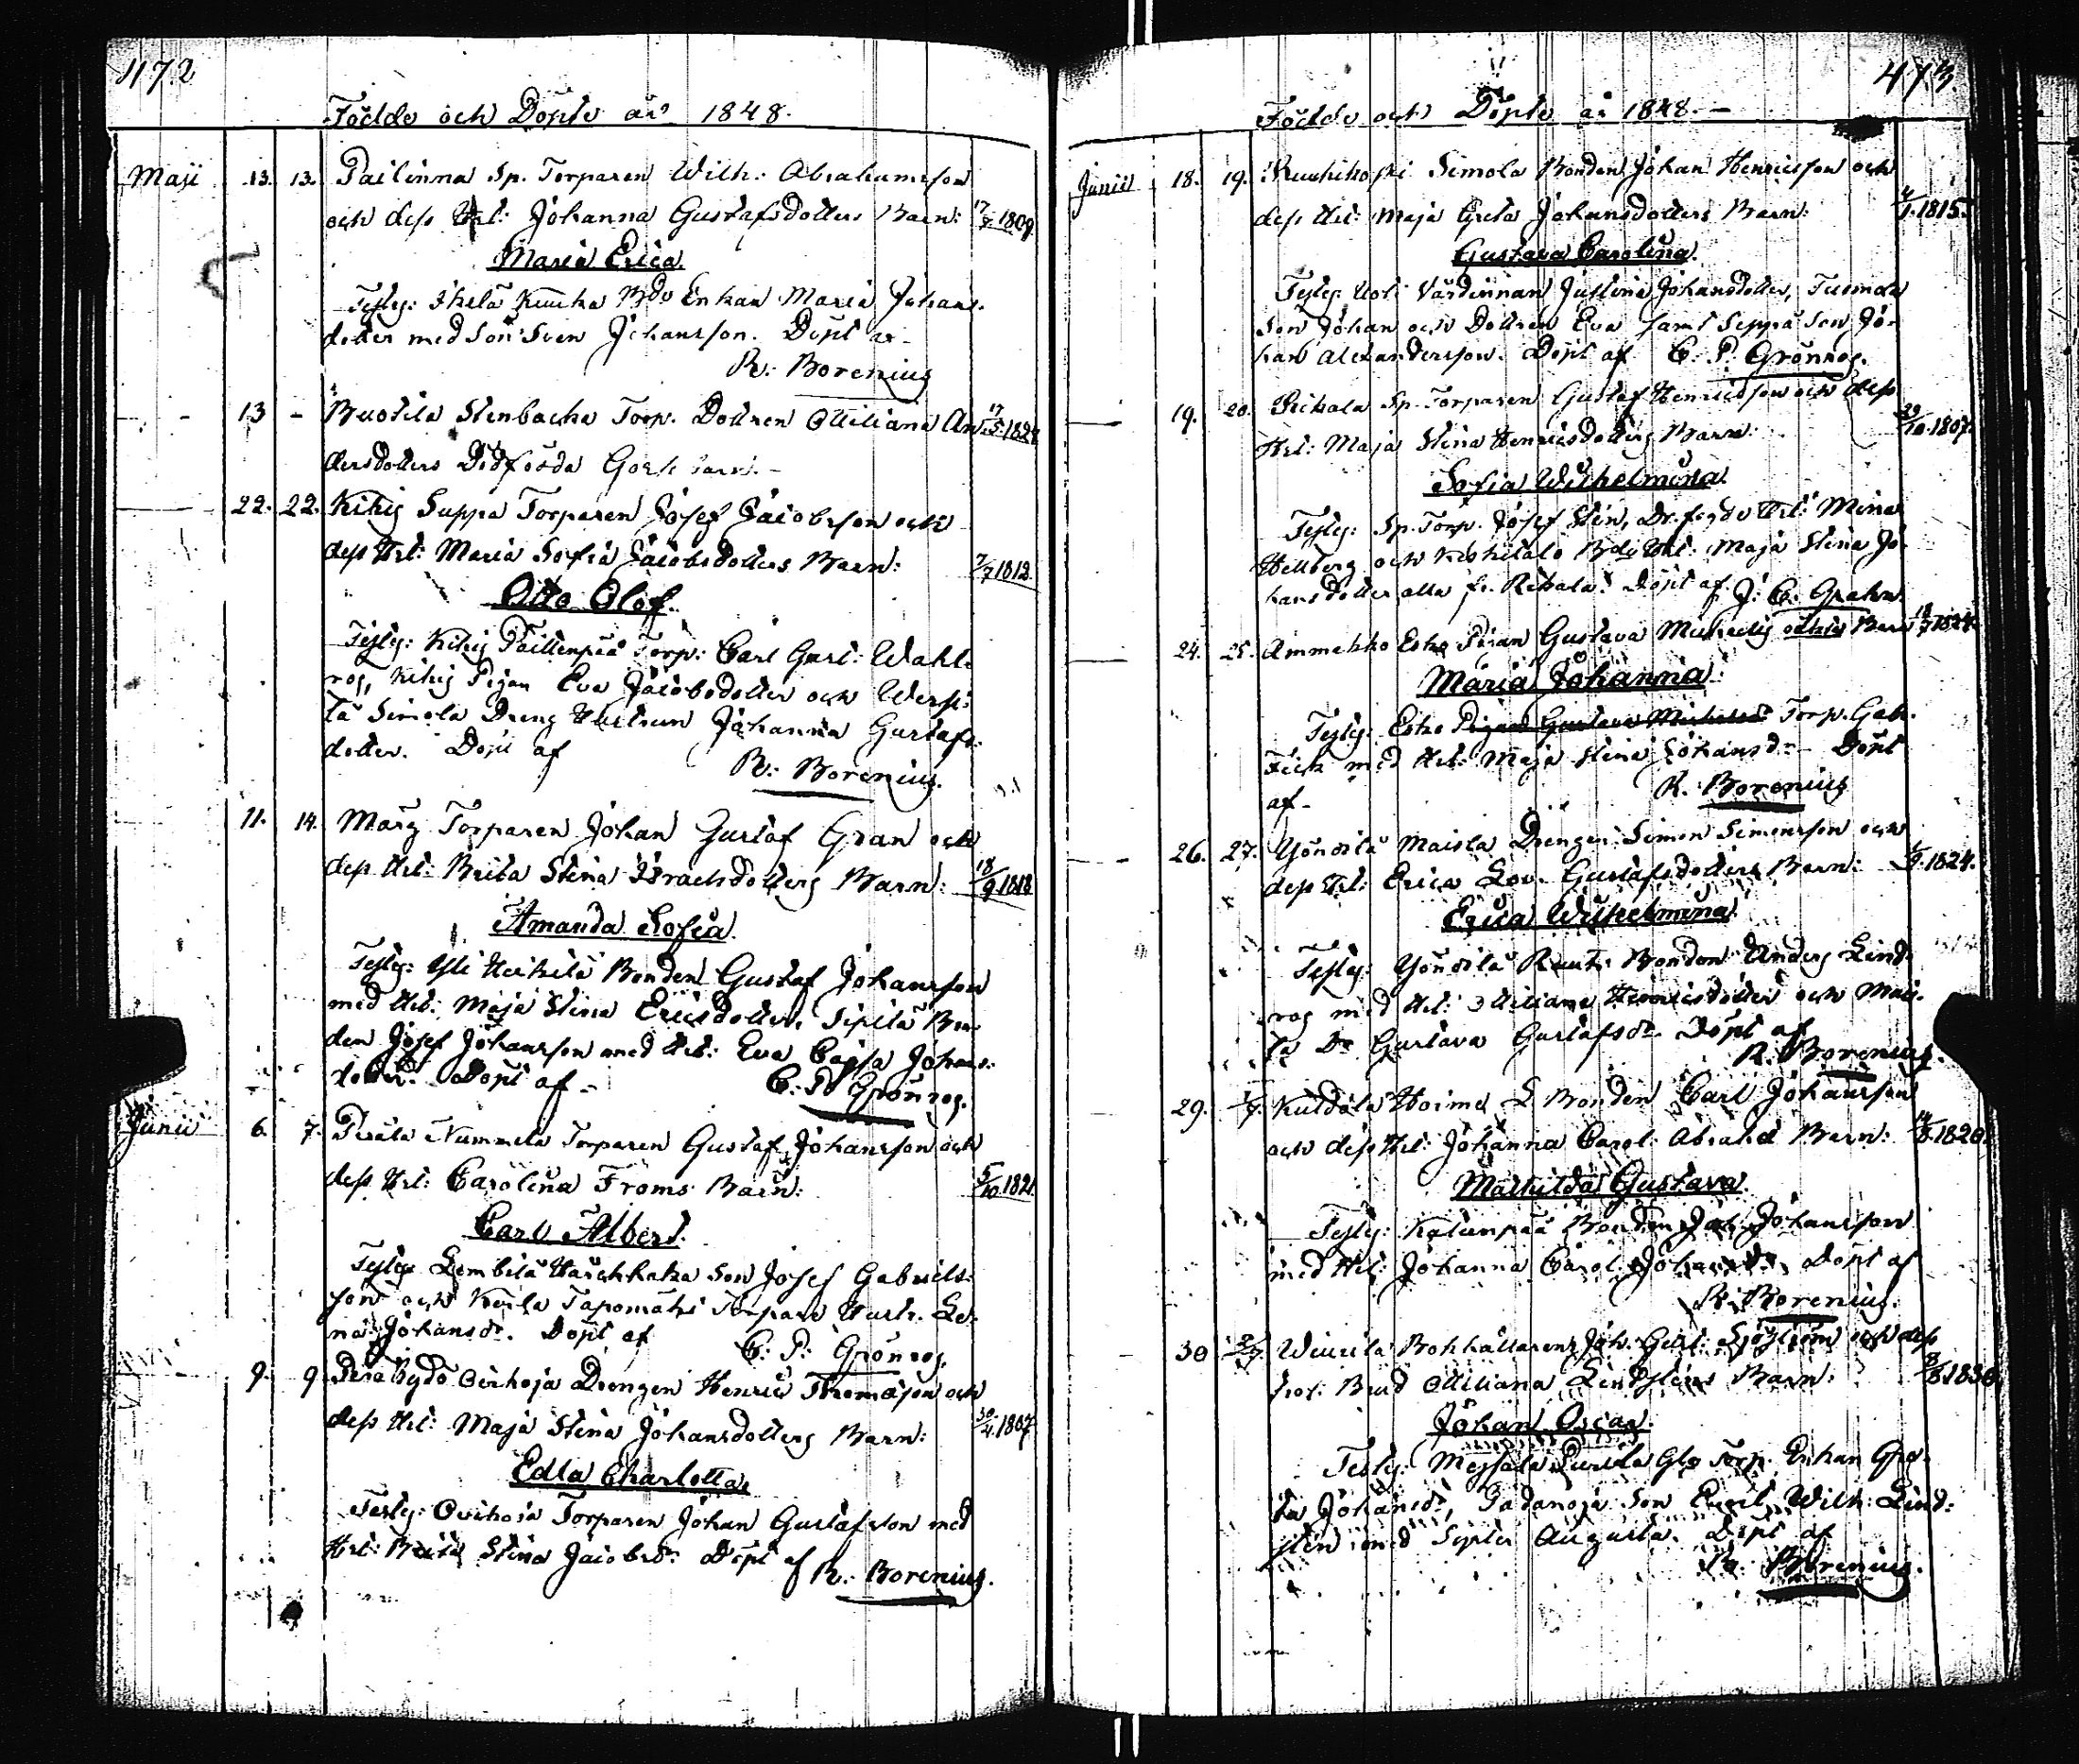 472
Födde och Döpte år 1848.
Maji 13. 13. Pailinna Sp. Torparen Wilh: Abrahamsson
och dess Hel: Johanna Gustafsdotters Barn: 17/7.1809
Maria Erica
Testes: Ikelä Kuncka Enkan Maria Johans-
dotter med Son Sven Johansson. Döpt af
R: Borenius
13 - Ruotila Stenbacka Torp. Dottren Ottiliana An- 17/5.1824
dersdotters Dödfödda Gosse barn.
22. 22. Kikis Suppa Torparen Josef Jacobsson och
dess Hel: Maria Sofia Jacobsdotters Barn: 7/7 1812
Otto Olof
Testes: Kikis Torp: Carl Gust: Wahl-
ros, Kikis Pigan Eva Jacobsdotter och
Simola Dreng Hustrun Johanna Gustafs-
dotter. Döpt af
R: Borenius.
11. 14. Torparen Johan Gustaf Gran och
dess Hel: Brita Stina Israelsdotters Barn: 18/9.1818
Amanda Sofia.
Testes: Yli Heikilä Bonden Gustaf Johansson
med Hel: Maja Stina Ericsdotter, Sipilä Bon-
den Josef Johansson med Hel: Eva Cajsa Johans-
dotter. Döpt af
C: P: Grönros.
Junii 6. 7. Perälä Nummela Torparen Gustaf Johansson och
dess Hel: Carolina Froms Barn: 5/10.1821
Carl Albert.
Testes: Lembilä Son Josef Gabriels-
son och Torpare Hustr. Le-
na Johansdr. Döpt af C: P: Grönros.
9. 9 Ovihoja Drengen Henric Thomasson och
dess Hel: Maja Stina Johansdotters Barn: 30/4.1807
Edla Charlotta.
Testes: Ovihoja Torparen Johan Gustafsson med
Hel: Brita Stina Jacobsdr. Döpt af R: Borenius.
473
Födde och Döpte år 1848.
Junii 18. 19. Simola Bonden Johan Henricsson och
dess Hel: Maja Greta Johansdotters Barn: 1815.
Gustava Carolina.
Testes: Uoti Värdinnan Justina Johansdotter, Tuomola
Son Johan och Dottren Eva samt Seppä Son Jo-
han Alexandersson. Döpt af C. P. Grönros.
19. 20. Rekola Sp. Torparen Gustaf Henricsson och dess
Hel: Maja Stina Henricsdotters Barn: 29/10.1807.
Sofia Wilhelmina.
Testes: Sp. Torp. Josef Sten, Hel: Mina
Hellberg och Hel: Maja Stina Jo-
hansdotter alla fr. Rekola. Döpt af J: C: Grahn.
24. 25. Ammekko Esko Pigan Gustava Barn
Maria Johanna.
Testes: Esko Torp. Gab.
med Hel: Maja Stina Johansdr. Döpt
af
R. Borenius
26. 27. Yönoilä Maisla Drengen Simon Simonsson och
dess Hel: Erica Lov. Gustafsdotters Barn: 1824.
Erica Wilhelmina.
Testes: Yönoilä Bonden Anders Lind-
ros med Hel: Ottiliana Henricsdotter och Mais-
la Dr Gustava Gustafsdr. Döpt af
R. Borenius.
29. Kuldala Hoima Bonden Carl Johansson
och dess Hel: Johanna Carol: Barn: 1820.
Mathilda Gustava.
Testes: Katunpää Bonden Joh. Johansson
med Hel: Johanna Carol. Johansdr. Döpt af
R: Borenius.
30 2/7. Bokhållarens Joh: Gust: Sjöström och dess
Brud Ottiliana Lindsténs Barn: 1830.
Johan Oscar.
Testes: Torp. Enkan Gre-
ta Johansdr, Padanoja Son Emil Wilh: Lind-
stén med Syster Augusta. Döpt af
R: Borenius.